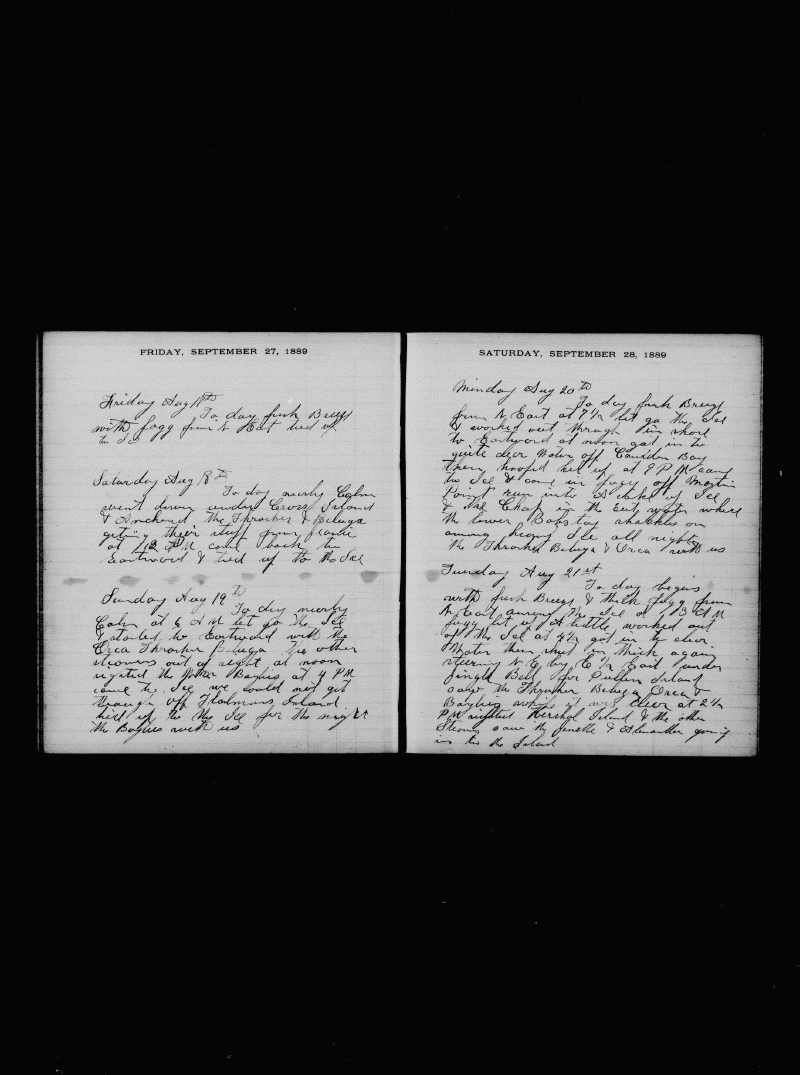 FRIDAY, SEPTEMBER 27, 1889
Friday Aug 17th
To day fresh Breeze
with fogg from N East tied up
to Ice
Saturday Aug 18th
To day nearly Calm
went down under Cross Island
& Anchord the Thrasher & Beluga
geting their stuff from
at PM came back to
Eastward & tied up to the Ice
Sunday Aug 19th
To day nearby
Calm at 6 AM let go the Ice
& started to Eastward with the
Orca Thrasher Beluga the other
steamers out of sight at noon
sighted the Wm Baylies at 4 PM
came to Ice we could not get
through off Island
tied up to the Ice for the night
the Baylies with us
SATURDAY, SEPTEMBER 28, 1889
Monday Aug 20th
To day fresh Breeze
from N East at 7 1/2 let go the Ice
& worked out through in shore
to Eastward at noon got in to
quite clear Water off Camden Bay
then hooked her up at 9 PM came
to Ice & came in foggy off Martin
Point run into a cake of Ice
& the Chafe in the Cut water where
the lower Bobstay shackles on
among heavy Ice all night
the Thrasher Beluga & Orca with us
Tuesday Aug 21st
To day begins
with fresh Breeze & thick fogg from
N East among the Ice at 3 AM
fogg let up A little, worked out
of the Ice at 4 1/2 got in to clear
Water then shut in thick again
steering E by E 1/2 East under
Bell for Pullen Island
saw the Thrasher Beluga Orca &
Baylies it was clear at 2 1/2
PM sighted Hershal Island & the other
Steamers saw the Jenette & Alexander going
in to the Island